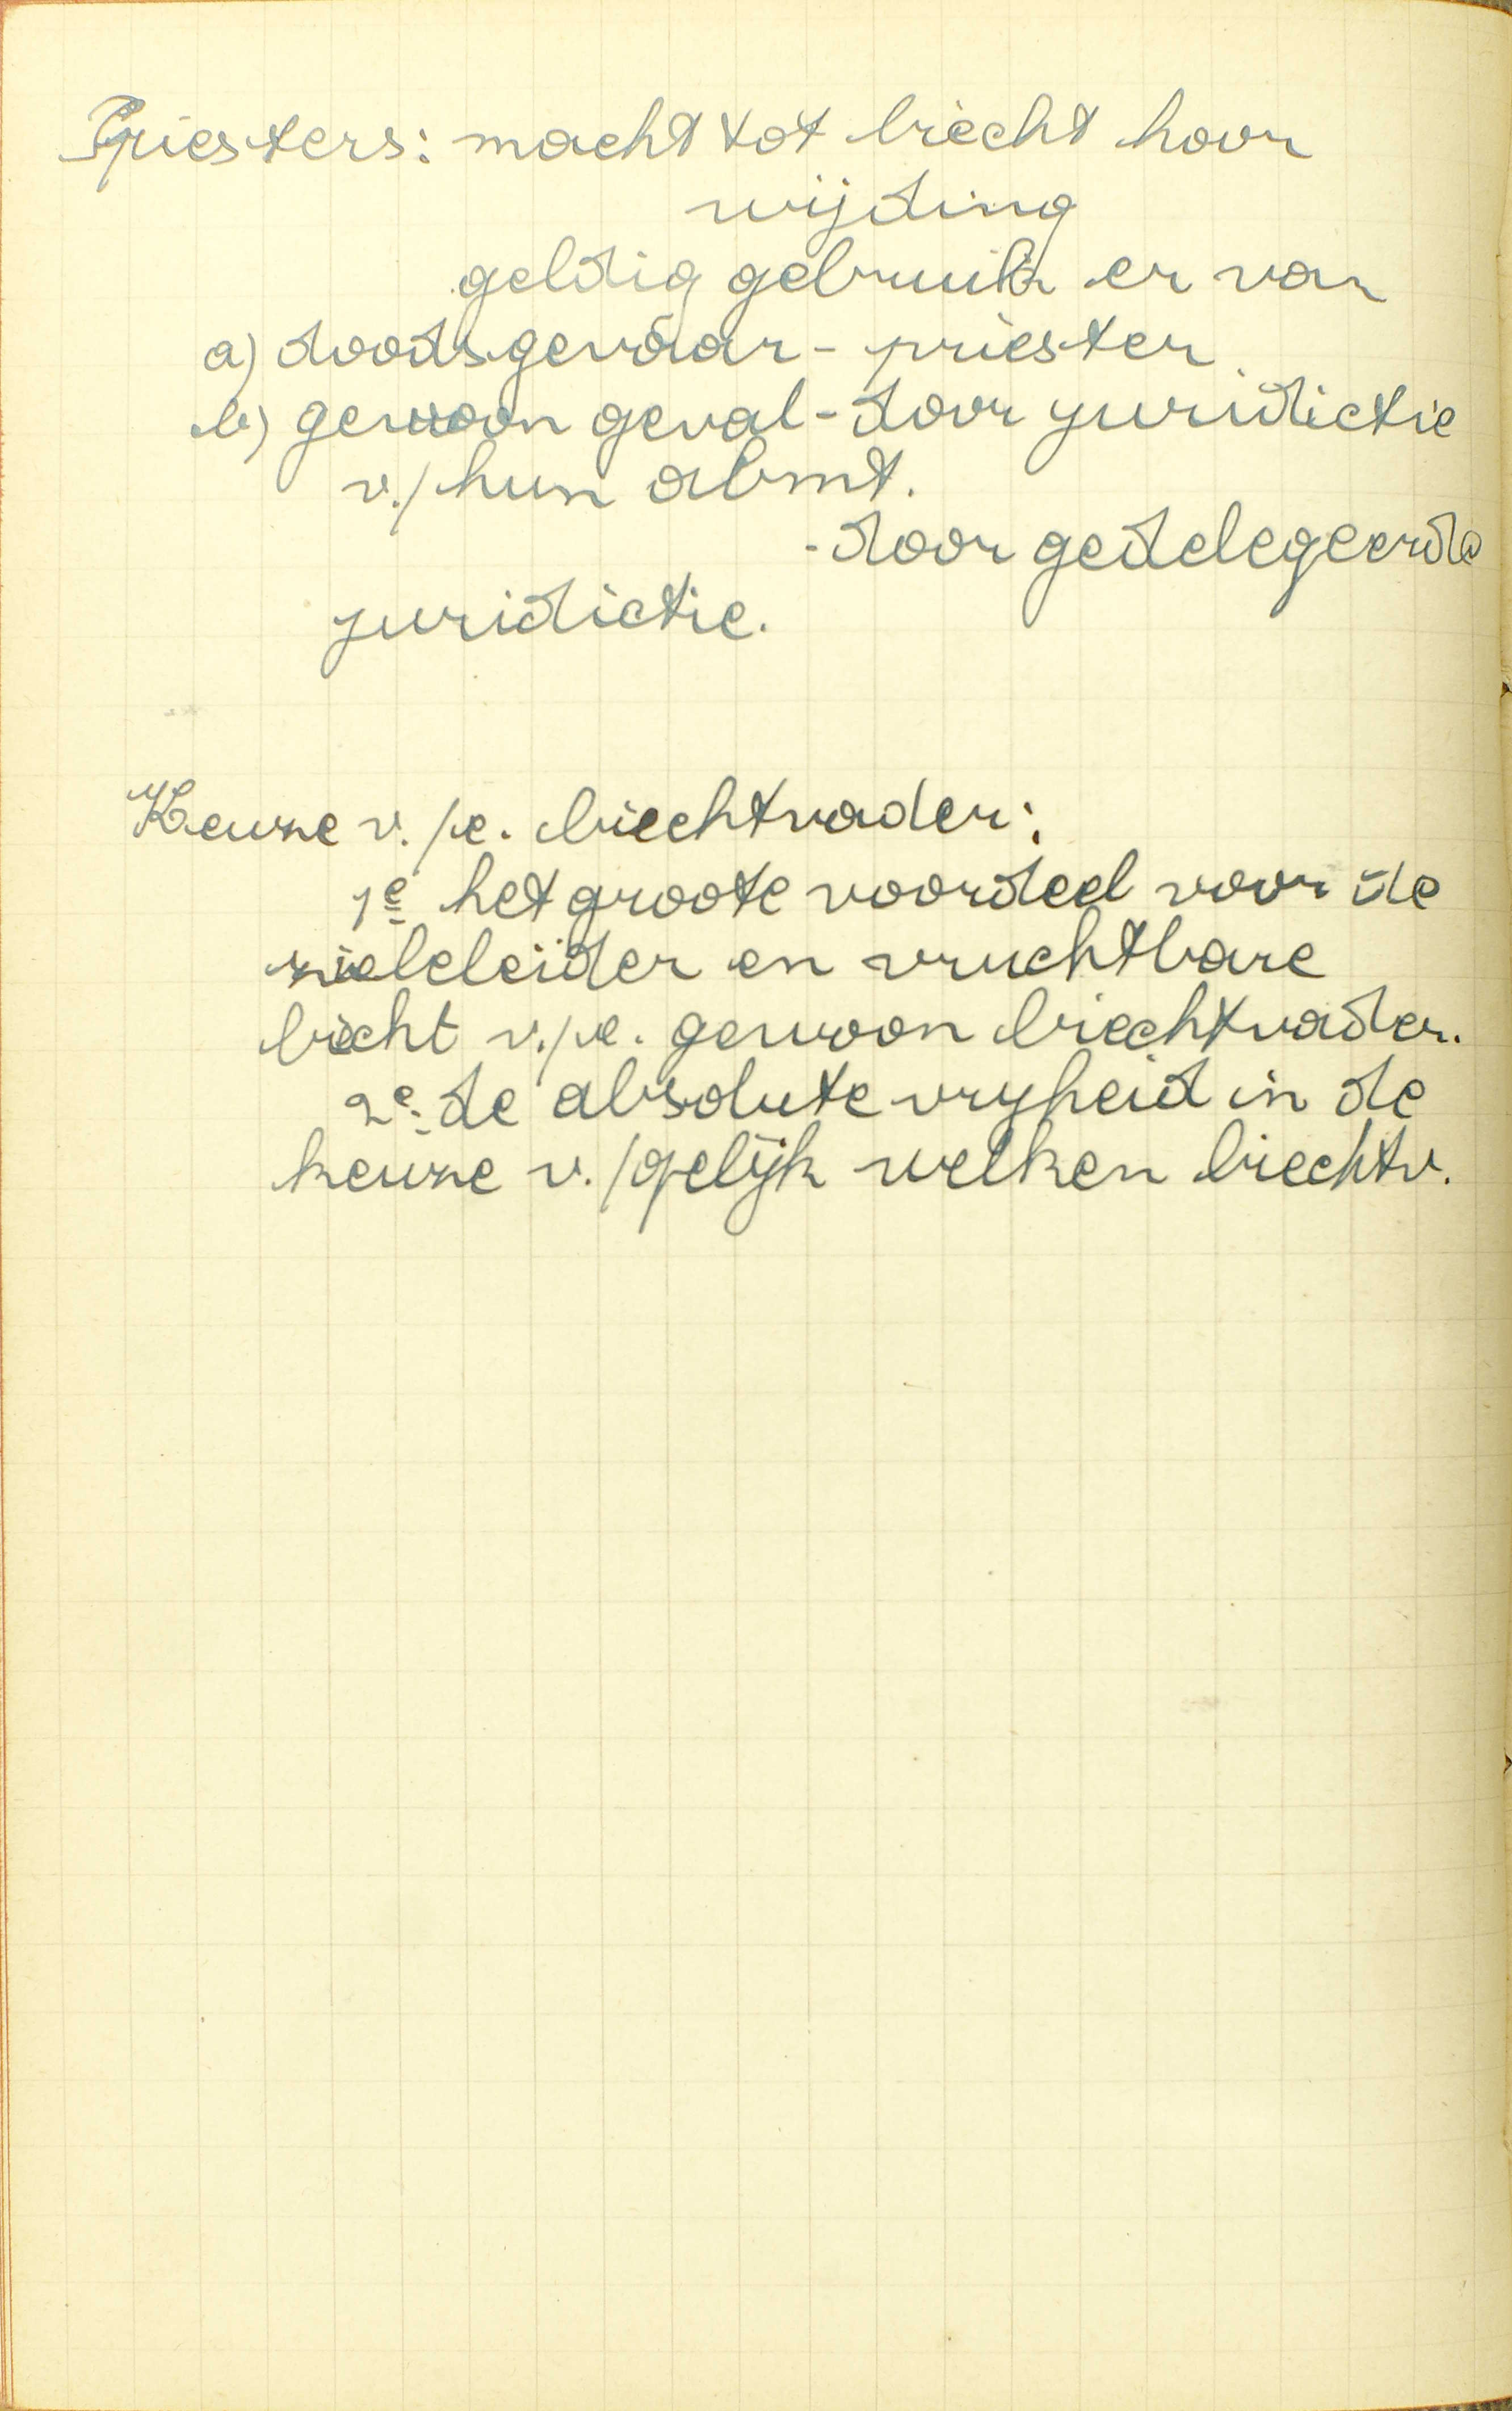 Priesters: macht tot biecht hoor
wijding
geldig gebruik er van
a) doodsgevaar - priester
b) gewoon geval - door juridictie
v./ hun abmt.
- door gedelegeerde
juridictie.
Keuze v./e. biechtvader:
1e het groote voordeel voor de
zieleleider en vruchtbare
biecht v./e. gewoon biechtvader.
2e. de absolute vryheid in de
keuze v./gelijk welken biechtv.